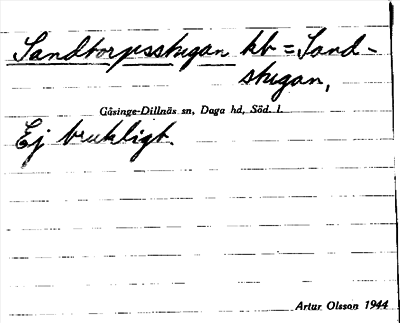 Sandtorpsstugan kb = Sand-
stugan,
Gåsinge-Dillnäs sn, Daga hd, Söd. l.
Ej brukligt.
Artur Olsson 1944